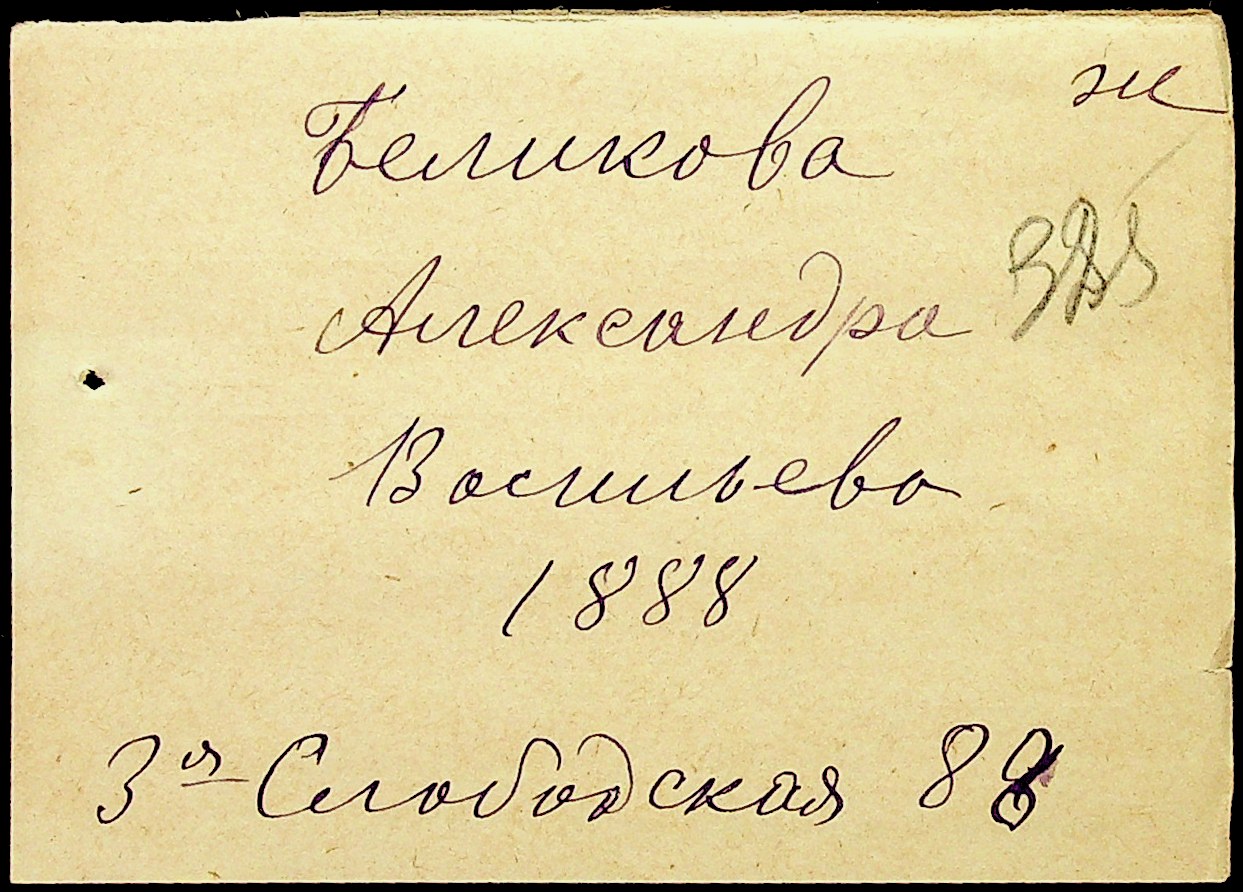 ж
Беликова
Александра
Васильева
1888
3ая Слободская 88